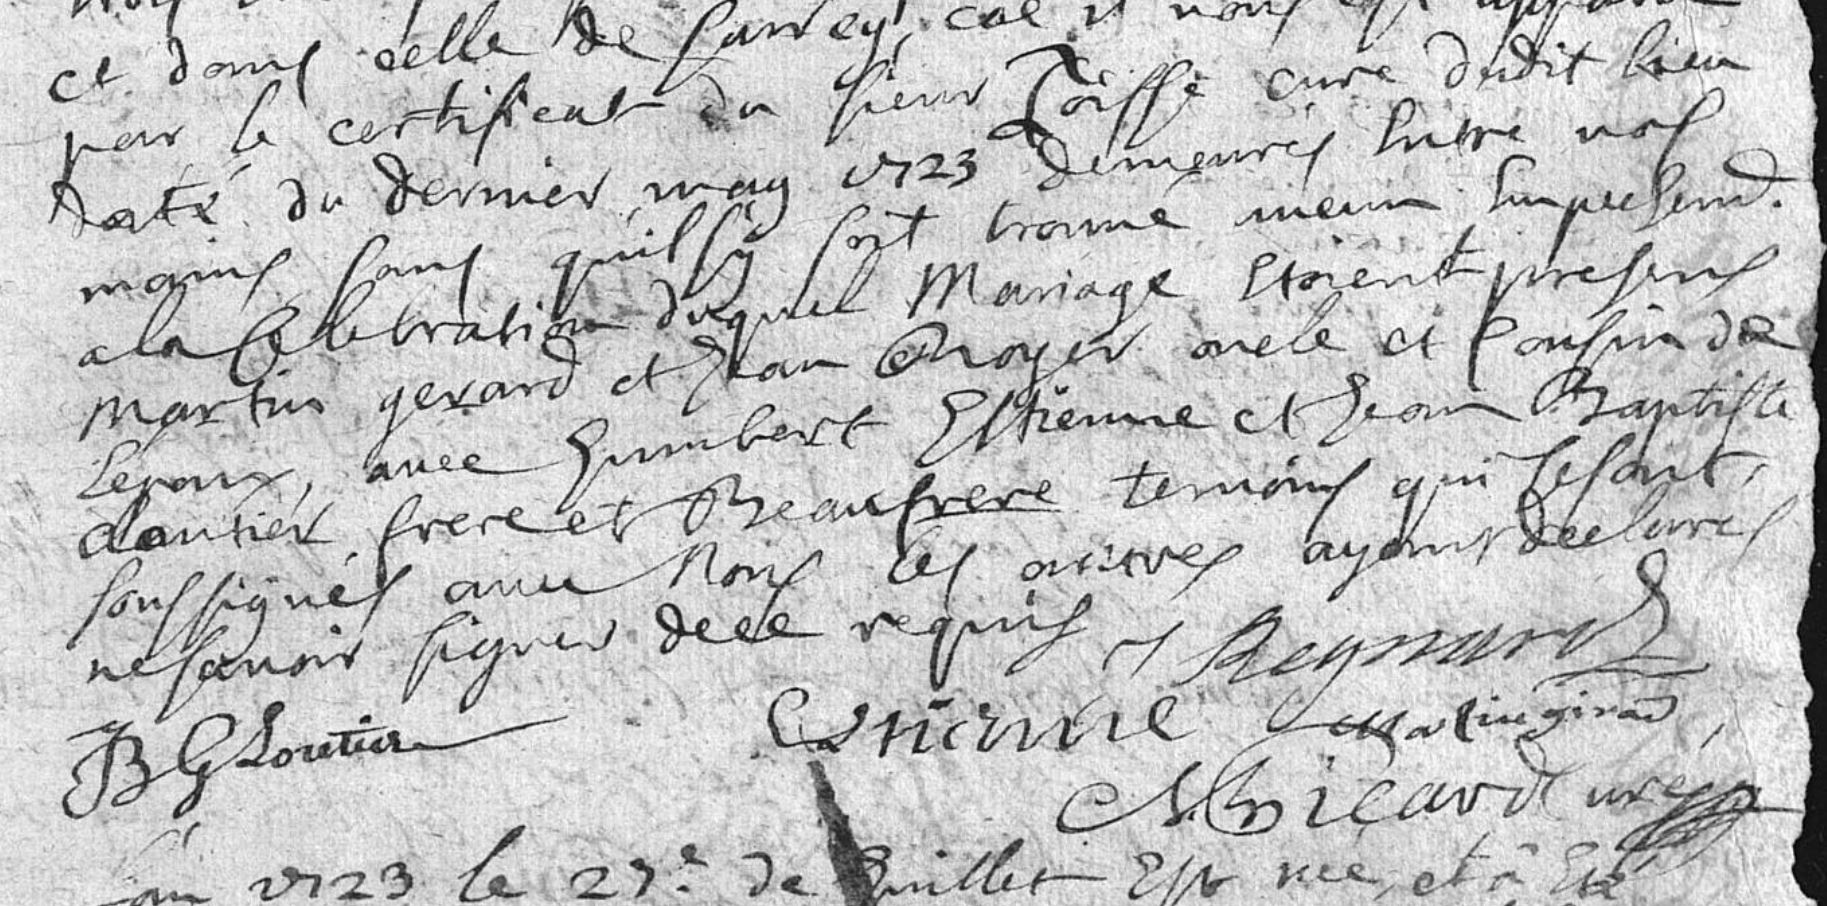 et dans celle de Sarrey, cõe il nous est apparu
par le certificat du sieur Toisse curé dudit lieu
daté du dernier may 1723 demeurés entre nos
mains sans quil sy soit trouvé aucun empechemt.
a la Celebration duquel Mariage etoient presens
Martin gerard et Jean Royer oncle et Cousin de
Lepoux, avec humbert Estienne et Jean Baptiste
frere et Beaufrere temoins qui se sont,
soussignés avec Nous les autres ayans declarés
ne savoir signer de ce requis Reynard
JB Estienne Martin girard
Bicard cure
L'an 1723 le 27e de Juillet Est née, et a Eté